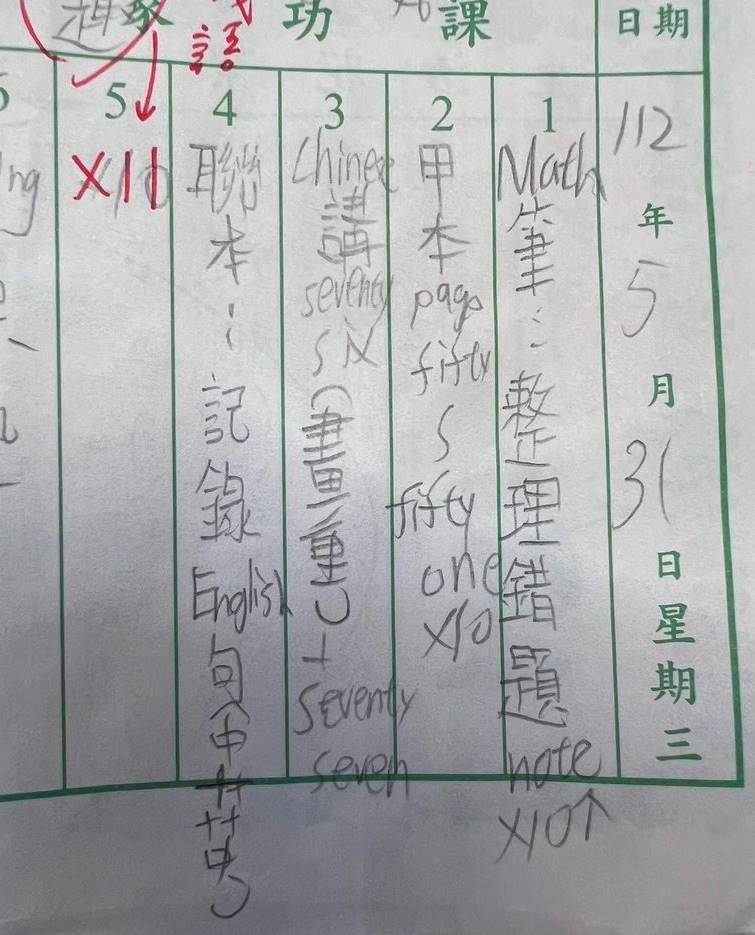 日期
112年5月31日星期三
1
Math筆：整理錯題note X10↑
功課
2
甲本page fifty ~ fifty one X10
3
Chinese講seventy six（畫重）+ seventy seven
4
聯本：記錄English
5
X11